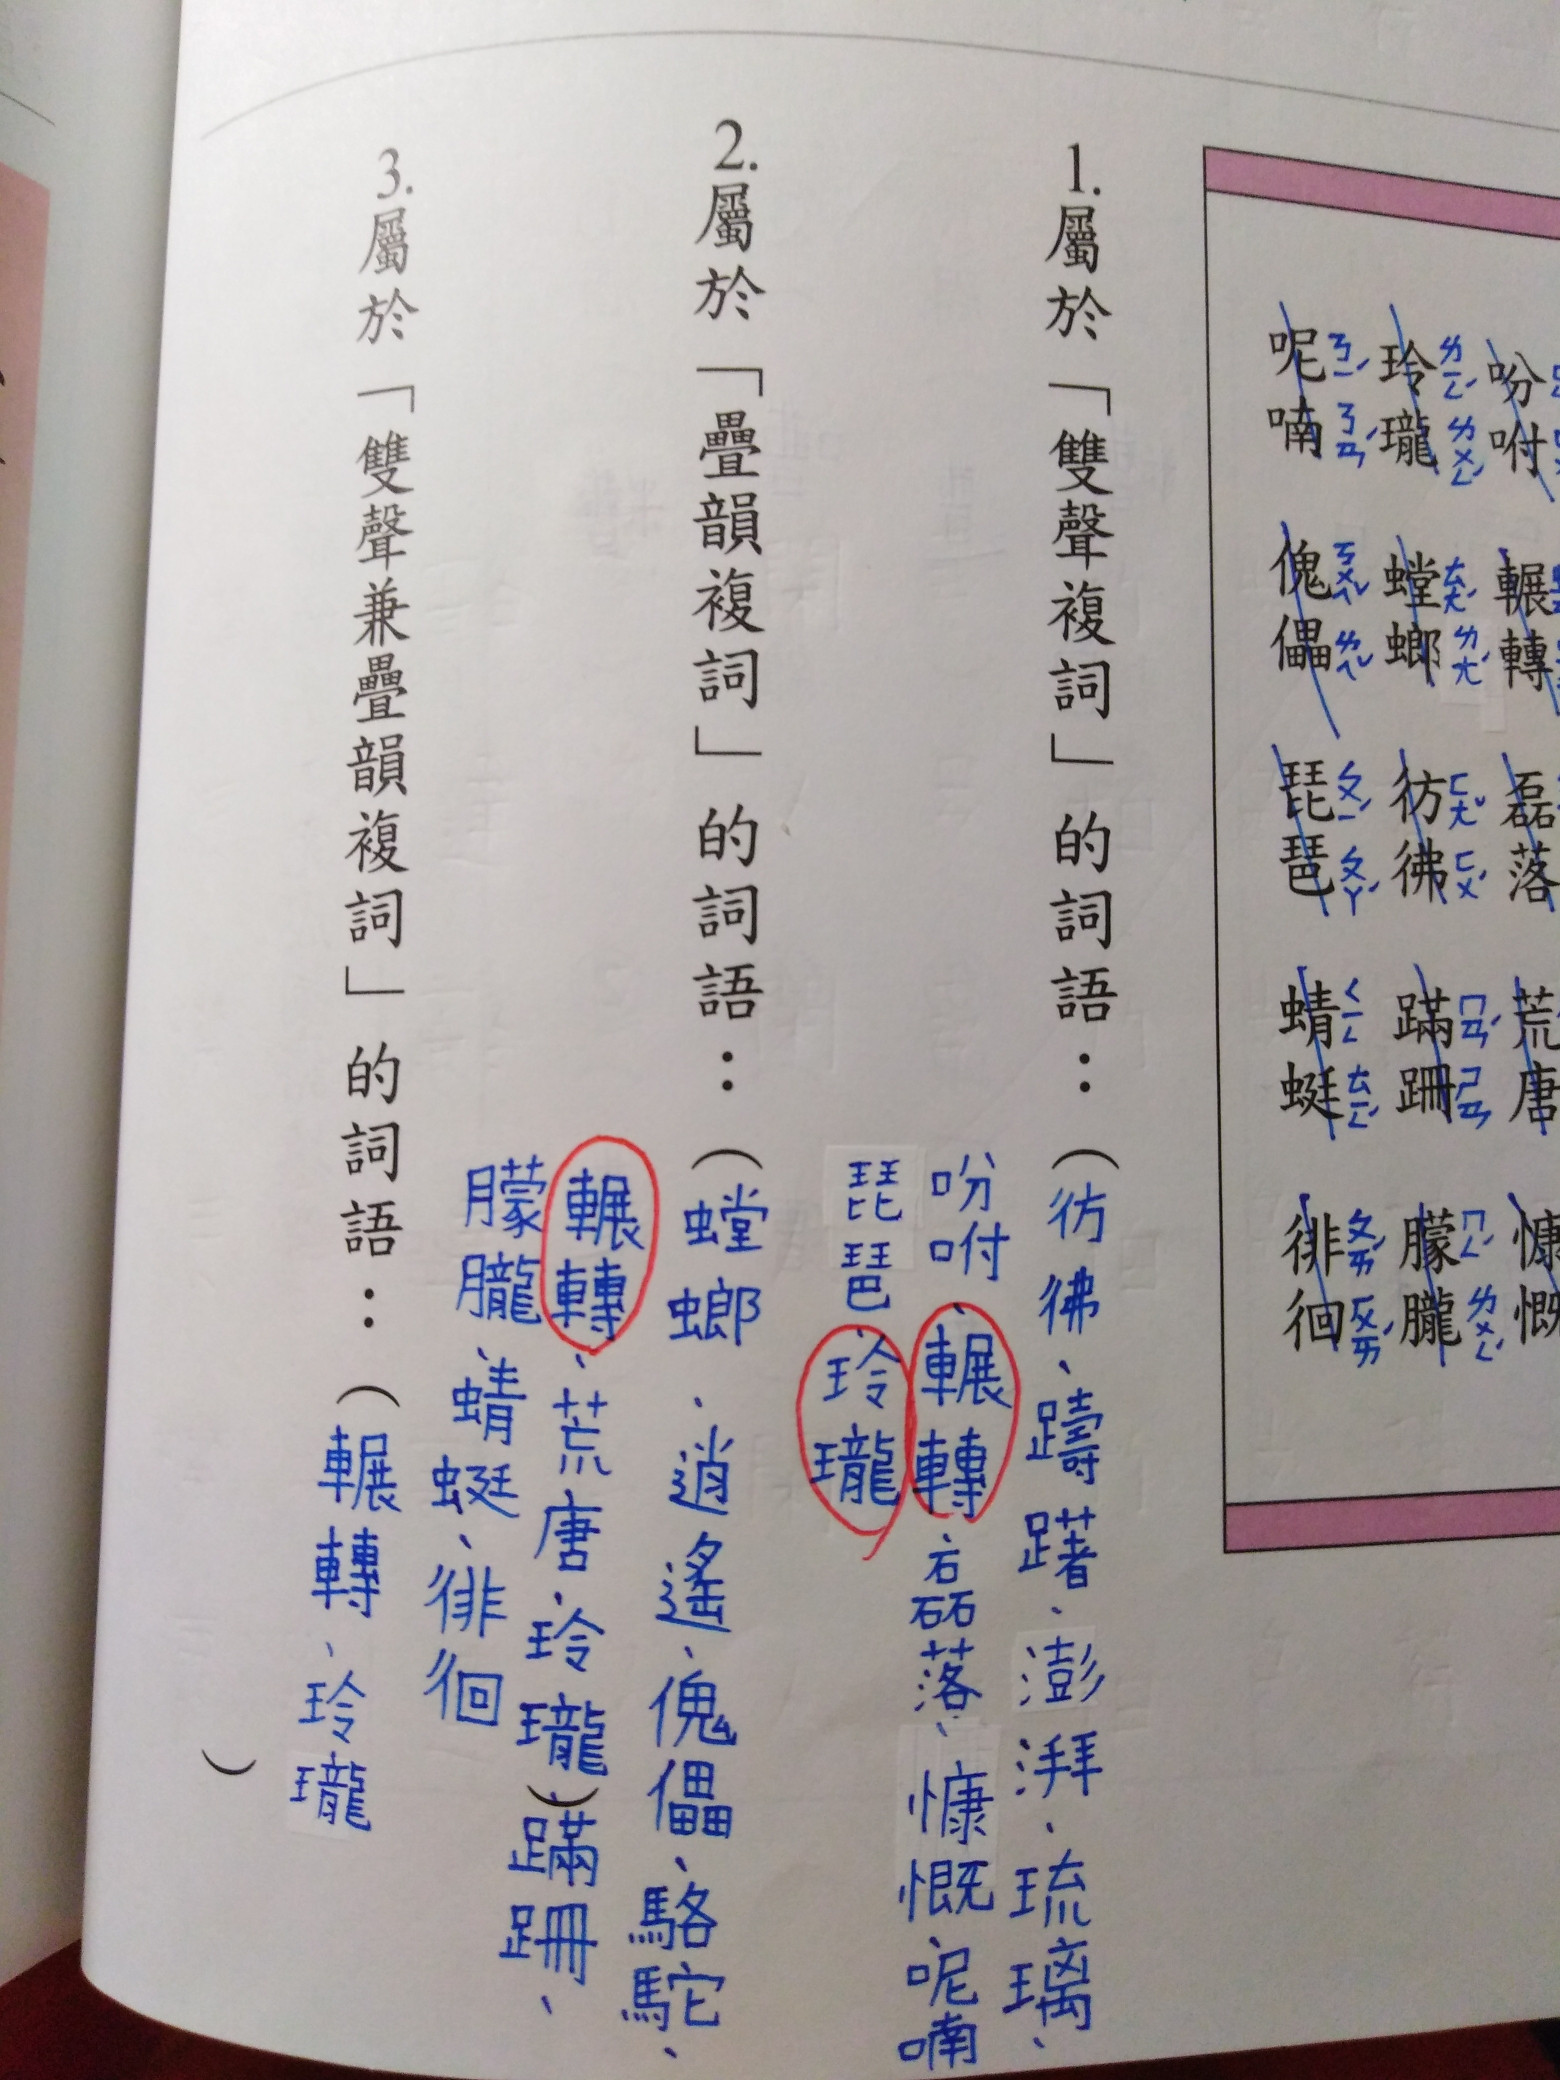 吩咐 輾轉 磊落 荒唐 慷慨
玲ㄌㄧㄥˊ瓏ㄌㄨㄥˊ 螳ㄊㄤˊ螂ㄌㄤˊ 彷ㄈㄤˇ彿ㄈㄨˊ 蹣ㄇㄢˊ跚ㄕㄢ 朦ㄇㄥˊ朧ㄌㄨㄥˊ
呢ㄋㄧˊ喃ㄋㄢˊ 傀ㄎㄨㄟˇ儡ㄌㄟˇ 琵ㄆㄧˊ琶ㄆㄚˊ 蜻ㄑㄧㄥ蜓ㄊㄧㄥˊ 徘ㄆㄞˊ徊ㄏㄨㄞˊ
1.屬於「雙聲複詞」的詞語：（彷彿、躊躇、澎湃、琉璃、
吩咐、輾轉、磊落、慷慨、呢喃
琵琶、玲瓏
2.屬於「疊韻複詞」的詞語：（螳螂、逍遙、傀儡、駱駝、
輾轉、荒唐、玲瓏）蹣跚、
朦朧、蜻蜓、徘徊
3.屬於「雙聲兼疊韻複詞」的詞語：（輾轉、玲瓏
）